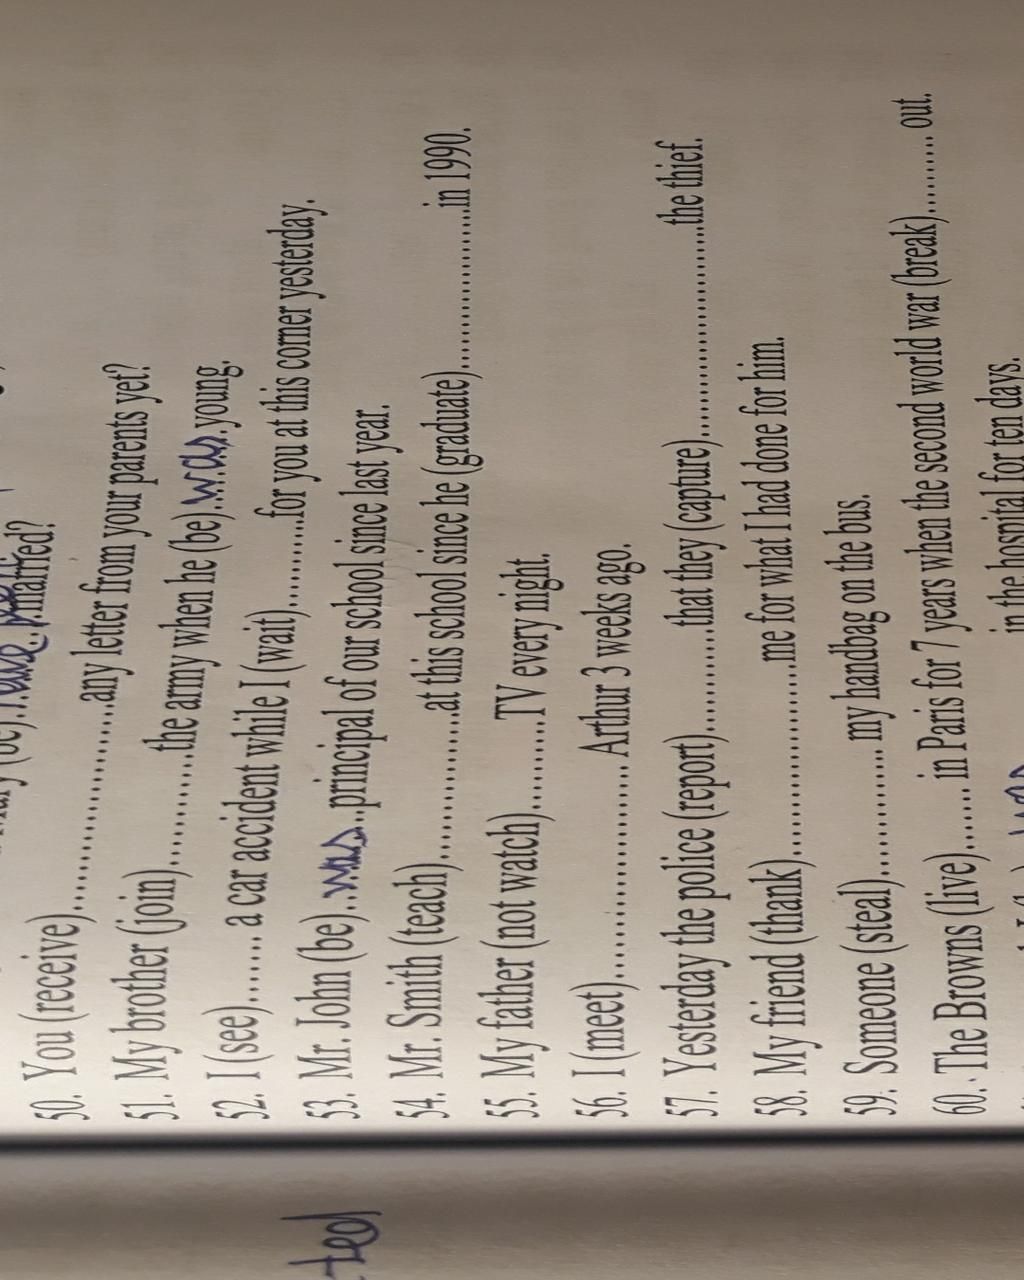 married?
50. You (receive)..............................any letter from your parents yet?
51. My brother (join)...............the army when he (be)..was..young.
52. I (see)....... a car accident while I (wait)..............for you at this corner yesterday.
53. Mr. John (be)..was..principal of our school since last year.
54. Mr. Smith (teach)....................at this school since he (graduate)......................in 1990.
55. My father (not watch)............TV every night.
56. I (meet)............................ Arthur 3 weeks ago.
57. Yesterday the police (report)..............that they (capture)............................the thief.
58. My friend (thank)........................me for what I had done for him.
59. Someone (steal)................. my handbag on the bus.
60. The Browns (live)....... in Paris for 7 years when the second world war (break)........... out.
was in the hospital for ten days.
ted